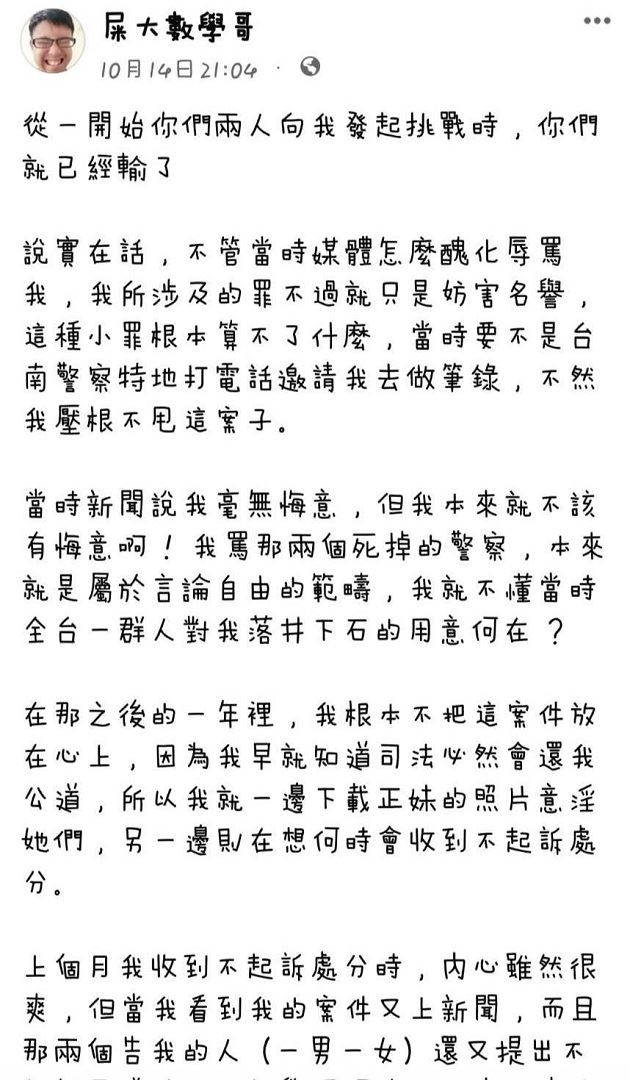 屎大數學哥
10月14日21:04 ·
從一開始你們兩人向我發起挑戰時，你們
就已經輸了
說實在話，不管當時媒體怎麼醜化辱罵
我，我所涉及的罪不過就只是妨害名譽，
這種小罪根本算不了什麼，當時要不是台
南警察特地打電話邀請我去做筆錄，不然
我壓根不甩這案子。
當時新聞說我毫無悔意，但我本來就不該
有悔意啊！我罵那兩個死掉的警察，本來
就是屬於言論自由的範疇，我就不懂當時
全台一群人對我落井下石的用意何在？
在那之後的一年裡，我根本不把這案件放
在心上，因為我早就知道司法必然會還我
公道，所以我就一邊下載正妹的照片意淫
她們，另一邊則在想何時會收到不起訴處
分。
上個月我收到不起訴處分時，內心雖然很
爽，但當我看到我的案件又上新聞，而且
那兩個告我的人（一男一女）還又提出不